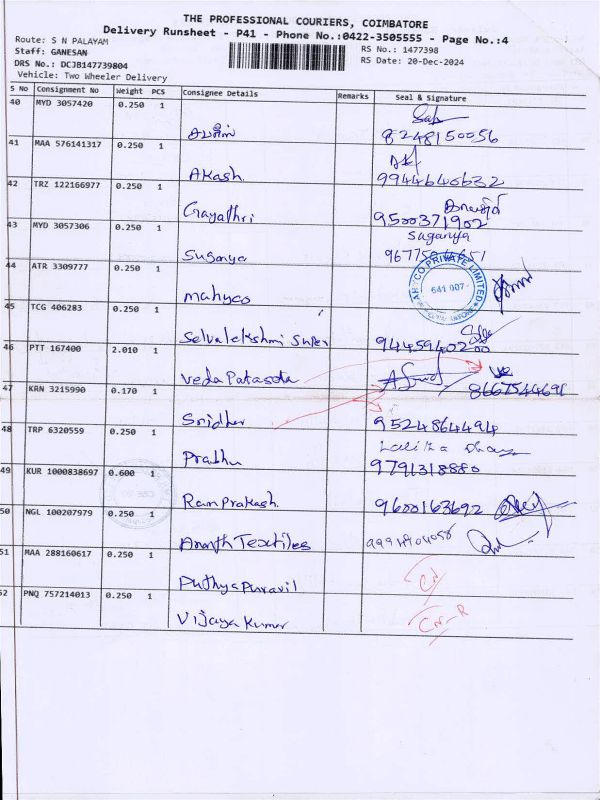 THE PROFESSIONAL COURIERS, COIMBATORE
Delivery Runsheet - P41 - Phone No.:0422-3505555 - Page No.:4
Route: S N PALAYAM
Staff: GANESAN
DRS No.: DCJB147739804
Vehicle: Two Wheeler Delivery
RS No.: 1477398
RS Date: 20-Dec-2024
S No Consignment No Weight PCS Consignee Details Remarks Seal & Signature
40 MYD 3057420 0.250 1
8248150056
41 MAA 576141317 0.250 1
Akash 9944640632
42 TRZ 122166977 0.250 1
Gayathri 9500371902
43 MYD 3057306 0.250 1 Suganya
Suganya
44 ATR 3309777 0.250 1
Mahyco
AHYCO PRIVATE LIMITED
641 007
45 TCG 406283 0.250 1
Selvalekshmi Super 9445940200
46 PTT 167400 2.010 1
Veda Patasala 8667544691
47 KRN 3215990 0.170 1
Sridher 9524864494
48 TRP 6320559 0.250 1
Prabhu 9791318880
49 KUR 1000838697 0.600 1
Ram Prakash 9600163692
50 NGL 100207979 0.250 1
Ananth Textiles
51 MAA 288160617 0.250 1
Puthya Puravil
52 PNQ 757214013 0.250 1
Vijaya Kumar